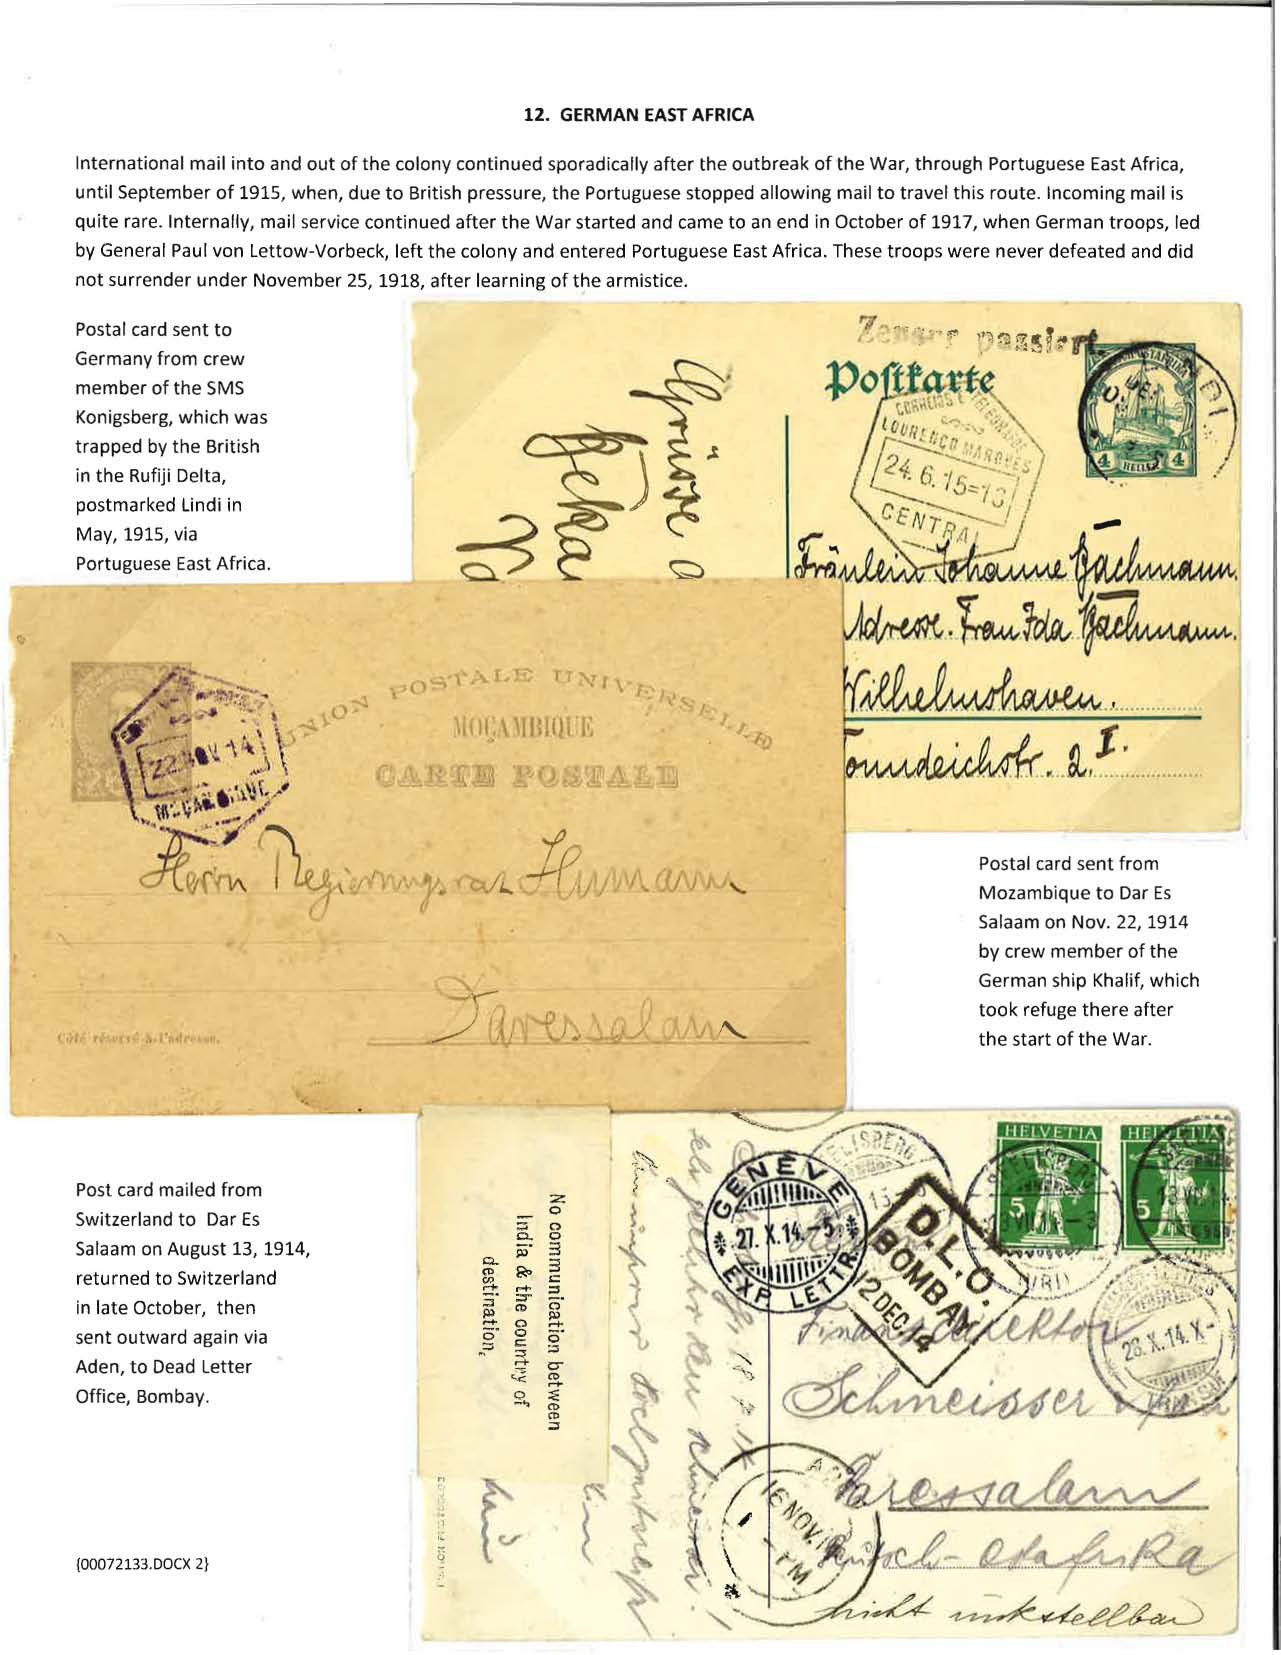 12. GERMAN EAST AFRICA
International mail into and out of the colony continued sporadically after the outbreak of the War, through Portuguese East Africa,
until September of 1915, when, due to British pressure, the Portuguese stopped allowing mail to travel this route. Incoming mail is
quite rare. Internally, mail service continued after the War started and came to an end in October of 1917, when German troops, led
by General Paul von Lettow-Vorbeck, left the colony and entered Portuguese East Africa. These troops were never defeated and did
not surrender under November 25, 1918, after learning of the armistice.
Postal card sent to
Germany from crew
member of the SMS
Konigsberg, which was
trapped by the British
in the Rufiji Delta,
postmarked Lindi in
May, 1915, via
Portuguese East Africa.
Zensur passiert
Postkarte
CORREIOS E TELEGRAPHOS
LOURENÇO MARQUES
24.6.15=13
CENTRAL
4 HELLER 4
Grüsse
Fräulein Johanne Bachmann.
Adresse. Frau Ida Bachmann.
Wilhelmshaven.
2. I.
UNION POSTALE UNIVERSELLE
MOÇAMBIQUE
CARTE POSTALE
22 NOV 14
MOÇAMBIQUE
Herrn Regierungsrat Humann
Daressalam
Côté réservé à l'adresse.
Postal card sent from
Mozambique to Dar Es
Salaam on Nov. 22, 1914
by crew member of the
German ship Khalif, which
took refuge there after
the start of the War.
Post card mailed from
Switzerland to Dar Es
Salaam on August 13, 1914,
returned to Switzerland
in late October, then
sent outward again via
Aden, to Dead Letter
Office, Bombay.
No communication between
India & the country of
destination.
HELVETIA
5
HELVETIA
5
SEELISBERG
GENÈVE
27.X.14.-5
EXP. LETTR.
D.L.O.
BOMBAY
12 DEC. 14
28.X.14.X-
16 NOV. 14
1-PM
Finanzdirektor
Schmeisser
Daressalam
Deutsch-Ostafrika
nicht
{00072133.DOCX 2}